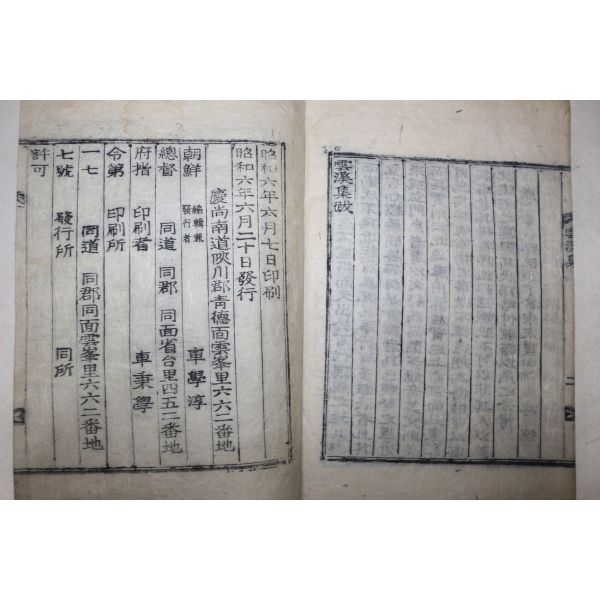 雲溪集
二
雲溪集跋
昭和六年六月七日印刷
昭和六年六月二十日發行
慶尚南道陜川郡青德面雲峯里六六二番地
朝鮮 編輯兼發行者 車學淳
總督 同道 同郡 同面省台里四五二番地
府指 印刷者 車秉學
令第 印刷所
一七 同道 同郡同面雲峯里六六二番地
七號 發行所 同所
許可